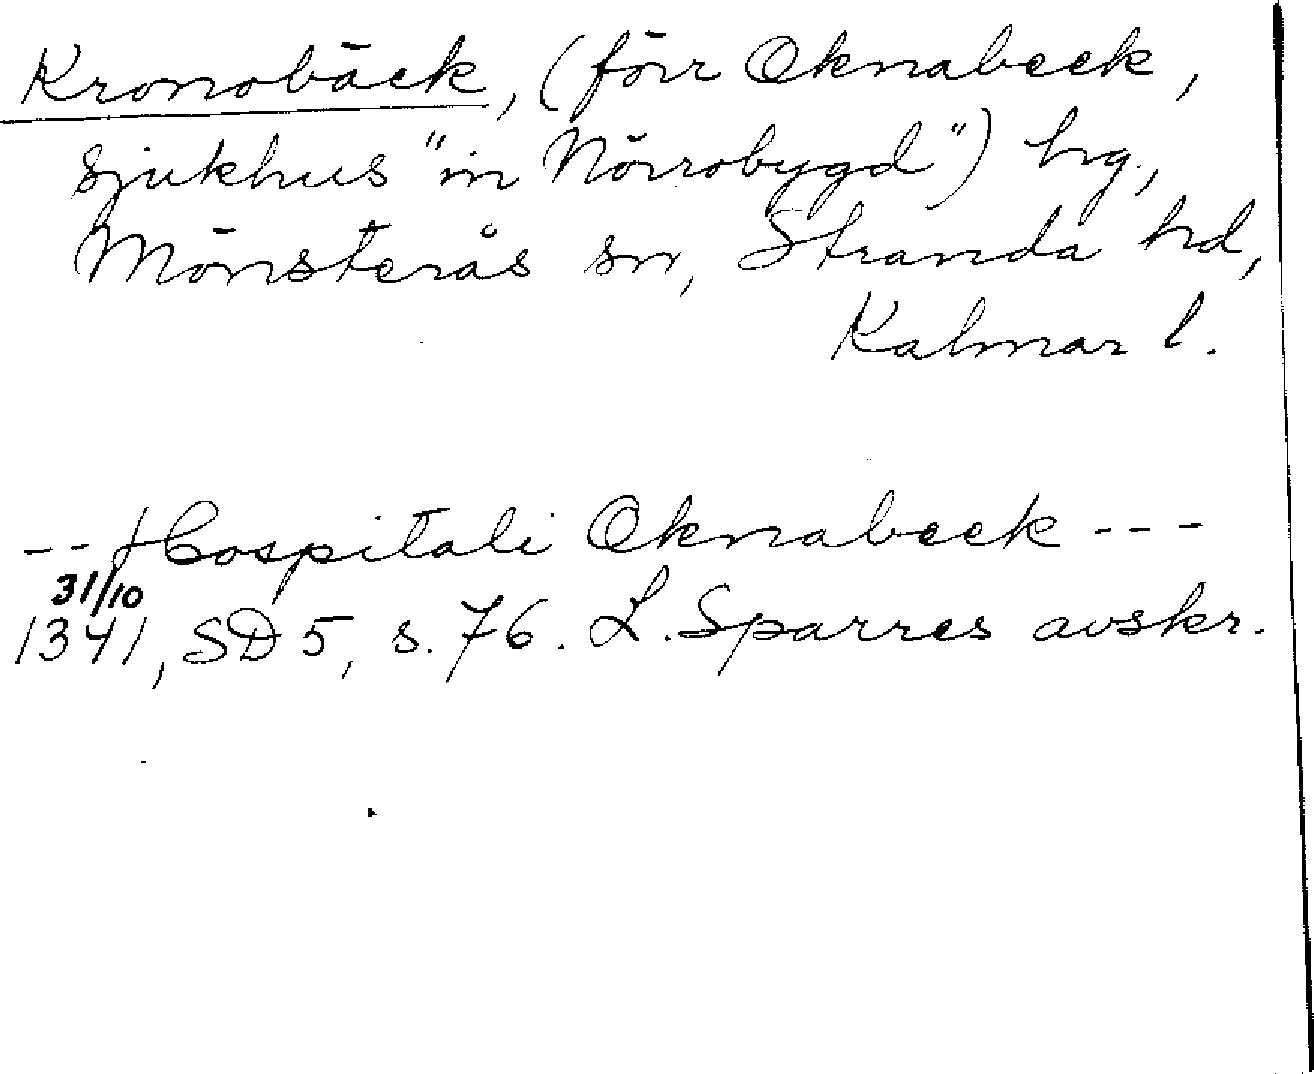 Kronobäck, (förr Oknabeek,
sjukhus "in Nörrobygd") hg.,
Mönsterås sn, Stranda hd,
Kalmar l.
-- Hospitali Oknabeek ---
31/10
1341, SD 5, s. 76. L. Sparres avskr.